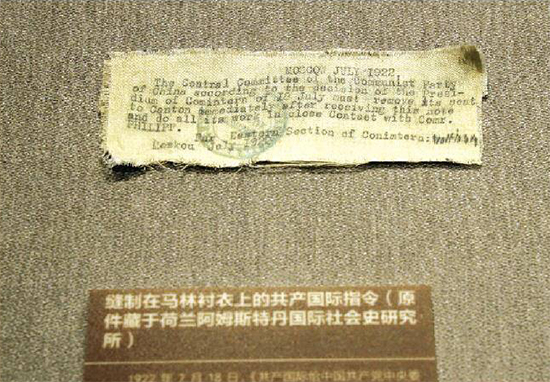 MOSCOW JULY 1922
The Central Committee of the Communist Party
of China according to the decision of the Presi-
dium of Comintern of 18 July must remove its seat
to Canton immediately after receiving this note
and do all its work in close Contact with Comr.
PHILIPP.
Eastern Section of Comintern:
Moskou July
缝制在马林衬衣上的共产国际指令（原
件藏于荷兰阿姆斯特丹国际社会史研究
所）
1922 年 7 月 18 日，《共产国际给中国共产党中央委